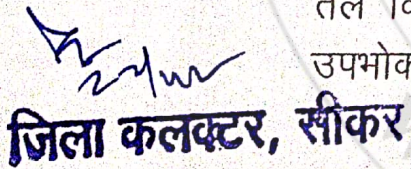 तेल
उपभोक
जिला कलक्टर, सीकर